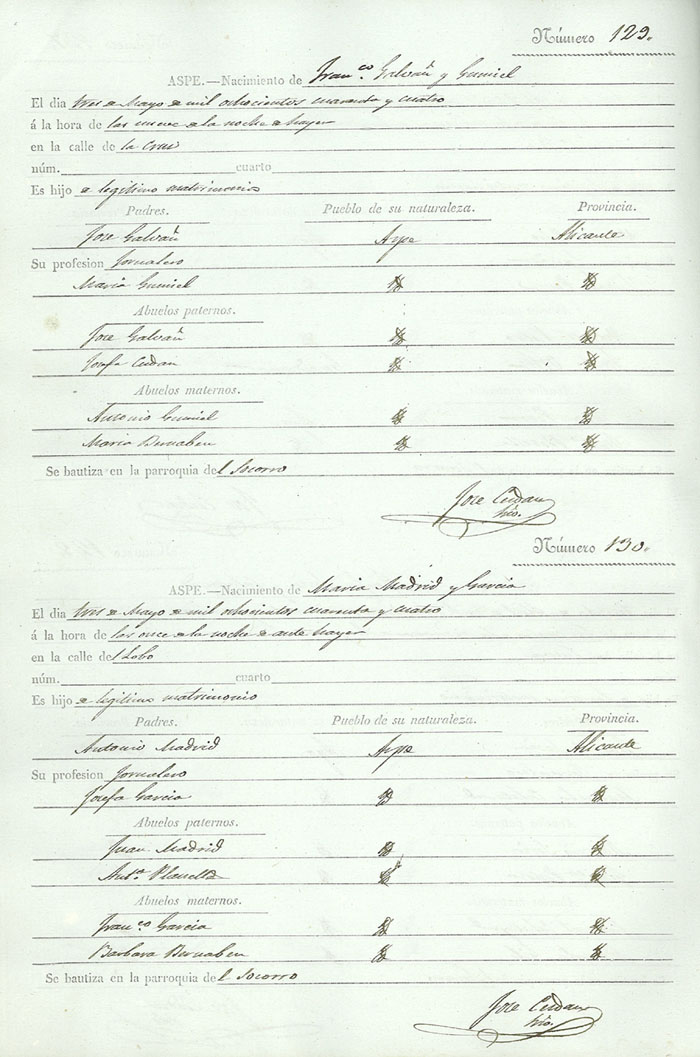 Número 129.
ASPE.—Nacimiento de Fran.co Galvañ y Gumiel
El dia tres de Mayo de mil ochocientos cuarenta y cuatro
á la hora de las nueve de la noche de hayer
en la calle de la Cruz
núm. cuarto
Es hijo de legitimo matrimonio
Padres. Pueblo de su naturaleza. Provincia.
Jose Galvañ Aspe Alicante
Su profesion Jornalero
Maria Gumiel
Abuelos paternos.
Jose Galvañ
Josefa
Abuelos maternos.
Antonio Gumiel
Maria Bernabeu
Se bautiza en la parroquia del Socorro
Jose
Número 130.
ASPE.—Nacimiento de Maria Madrid y Garcia
El dia tres de Mayo de mil ochocientos cuarenta y cuatro
á la hora de las once de la noche de ante hayer
en la calle del Lobo
núm. cuarto
Es hijo de legitimo matrimonio
Padres. Pueblo de su naturaleza. Provincia.
Antonio Madrid Aspe Alicante
Su profesion Jornalero
Josefa Garcia
Abuelos paternos.
Juan Madrid
Ant.a Planella
Abuelos maternos.
Fran.co Garcia
Barbara Bernabeu
Se bautiza en la parroquia del Socorro
Jose